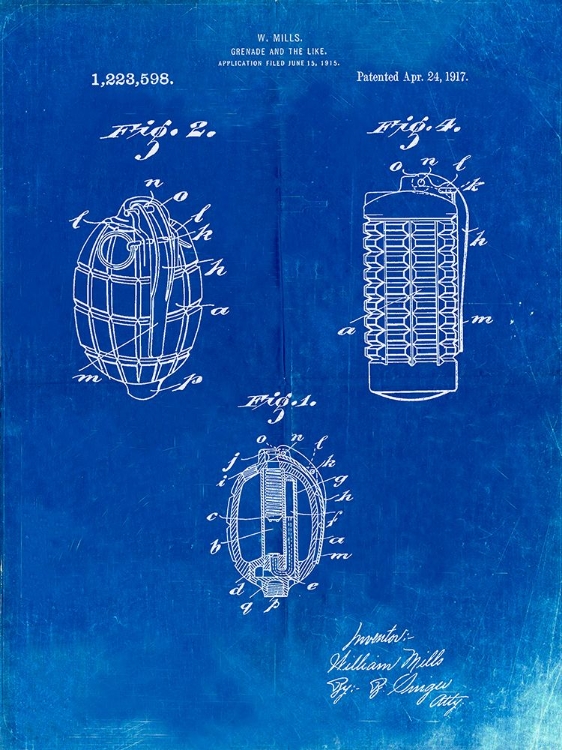 W. MILLS.
GRENADE AND THE LIKE.
APPLICATION FILED JUNE 15, 1915.
1,223,598.
Patented Apr. 24, 1917.
Fig. 2.
n
o
l
l
k
h
a
m
p
Fig. 4.
o n l
k
h
a
m
Fig. 1.
o n l
j k
i g
h
c f
b a
m
d e
q p
Inventor:-
William Mills
By:- B. Singer
Atty.